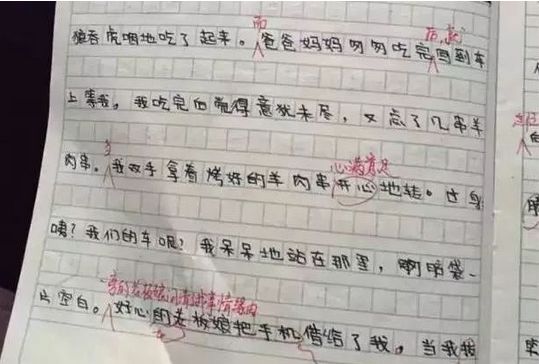 而 后,就
狼吞虎咽地吃了起来。爸爸妈妈匆匆吃完回到车
上等我,我吃完面觉得意犹未尽,又点了几串羊
心满意足
肉串。我双手拿着烤好的羊肉串开心地转。过身
咦?我们的车呢?我呆呆地站在那里,啊脑袋一
片空白。好心的老板娘把手机借给了我。当我